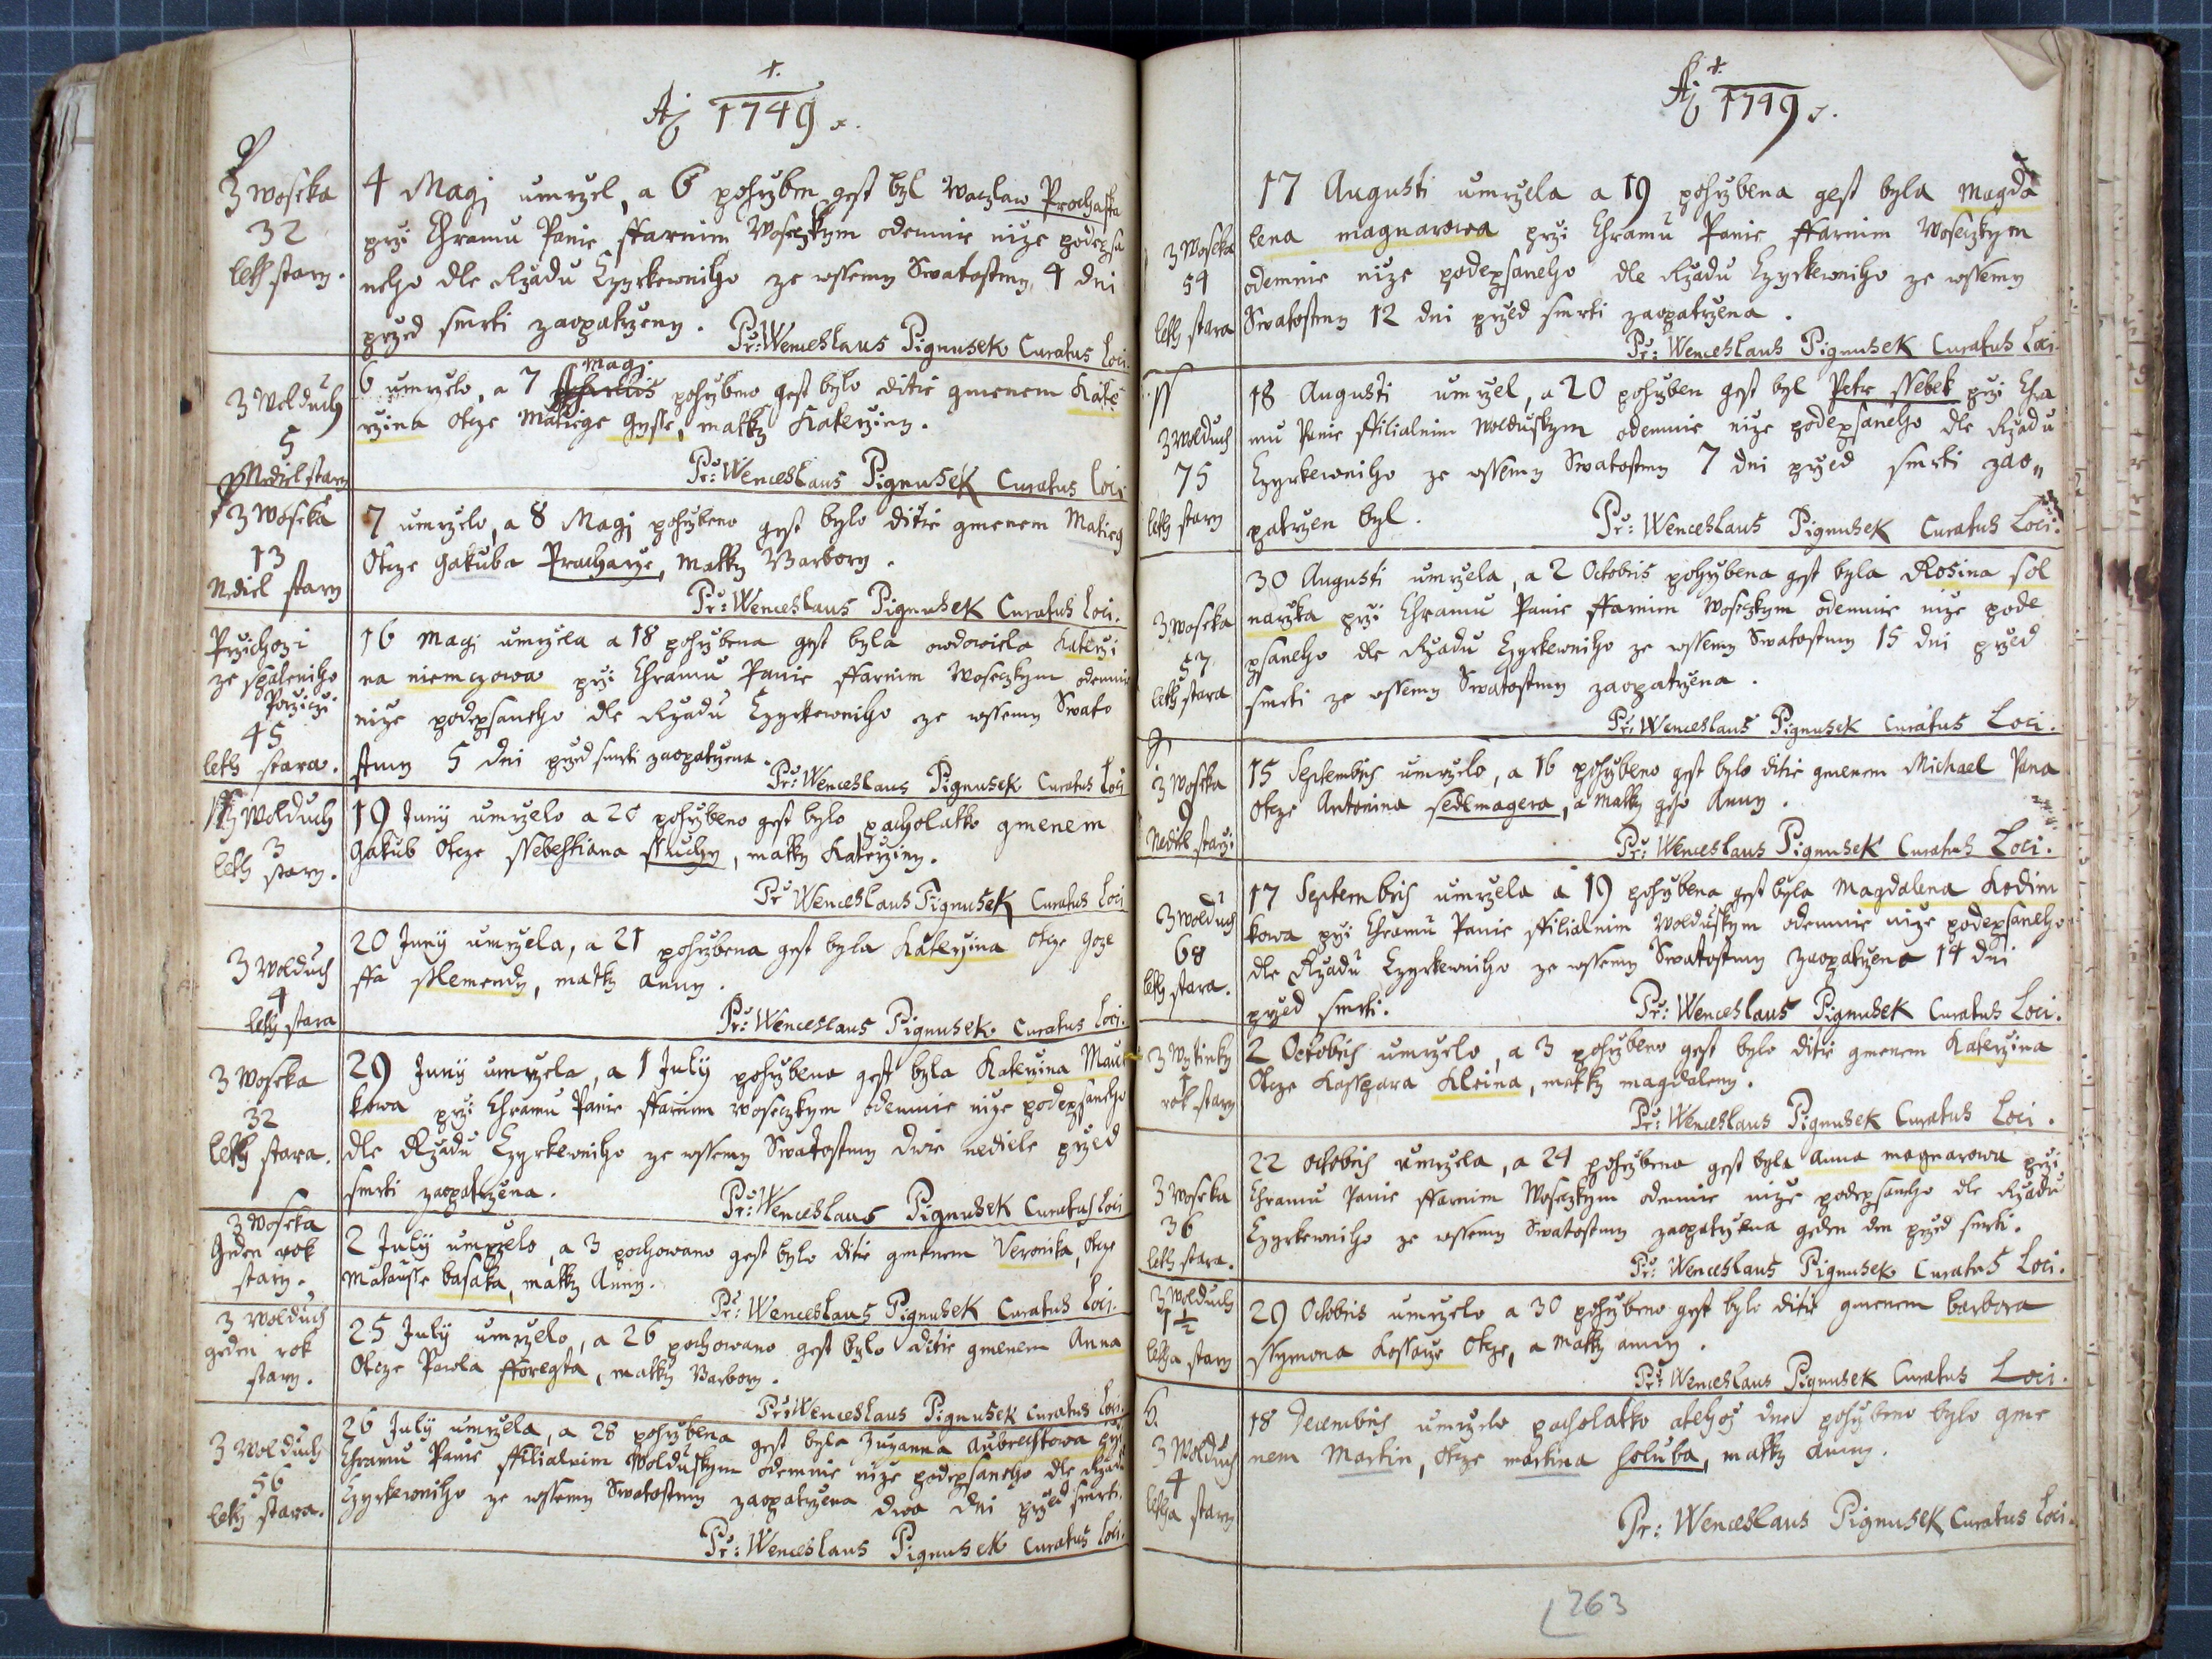 1749
Z Woseka
32
leth stary.
4 Magj umrzel, a 6 pohrzben gest byl Waczlaw Prochaska
przi Chramu Panie ffarnim Woseczkym odemnie nize podepsa
neho dle Rzadu Czyrkewniho ze wssemy Swatostmy, 4 dni
przed smrti zaopatrzeny. Pr: Wenceslaus Pignusek Curatus Loci.
Z Wolduch
5
Nediel stary
6 umrzelo, a 7 Magj pohrzbeno gest bylo ditie gmenem Kate
rzina otcze Matiege Gysse, matky Katerziny.
Pr: Wenceslaus Pignusek Curatus Loci
Z Woseka
13
Nediel stary
7 umrzelo, a 8 Magj pohrzbeno gest bylo ditie gmenem Matieg
Otcze Gakuba Pracharze, Matky Barbory.
Pr: Wenceslaus Pignusek Curatus Loci.
Przichozi
ze spaleniho
Porziczi
45
leth stara.
16 Magj umrzela a 18 pohrzbena gest byla owdowiela Katerzi
na niemczowa przi Chramu Panie ffarnim Woseczkym odemnie
nize podepsaneho dle Rzadu Czyrkewniho ze wssemy Swato
stmy 5 dni przed smrti zaopatrzena.
Pr: Wenceslaus Pignusek Curatus Loci
Wolduch
3
leth stary.
19 Junij umrzelo a 20 pohrzbeno gest bylo pacholatko gmenem
Gakub Otcze Ssebestiana Muchy, matky Katerziny.
Pr Wenceslaus Pignusek Curatus Loci
Z Wolduch
4
leth stara
20 Junij umrzela, a 21 pohrzbena gest byla Katerzina otcze Joze
ffa Klemendy, matky Anny.
Pr: Wenceslaus Pignusek Curatus Loci.
Z Woseka
32
leth stara.
29 Junij umrzela, a 1 Julij pohrzbena gest byla Katerzina
kowa przi Chramu Panie ffarnim Woseczkym odemnie nize podepsaneho
dle Rzadu Czyrkewniho ze wssemy Swatostmy dwie nediele przed
smrti zaopatrzena.
Pr: Wenceslaus Pignusek Curatus Loci
Z Woseka
Geden rok
stary.
2 Julij umrzelo, a 3 pochowano gest bylo ditie gmenem Veronika, otcze
Matausse basaka, matky Anny.
Pr: Wenceslaus Pignusek Curatus Loci.
Z Wolduch
geden rok
stary.
25 Julij umrzelo, a 26 pochowano gest bylo ditie gmenem Anna
Otcze Pawla fforegta, matky Barbory.
Pr: Wenceslaus Pignusek Curatus Loci.
Z Wolduch
56
leth stara.
26 Julij umrzela, a 28 pohrzbena gest byla Zuzanna Aubrechtowa przi
Chramu Panie ffilialnim Wolduskym odemnie nize podepsaneho dle Rzadu
Czyrkewniho ze wssemy Swatostmy zaopatrzena dwa dni przed smrti.
Pr: Wenceslaus Pignusek Curatus Loci.
1749
Z Woseka
54
leth stara
17 Augusti umrzela a 19 pohrzbena gest byla Magda
lena magnarowa przi Chramu Panie ffarnim Woseczkym
odemnie nize podepsaneho dle Rzadu Czyrkewniho ze wssemy
Swatostmy 12 dni przed smrti zaopatrzena.
Pr: Wenceslaus Pignusek Curatus Loci.
Z Wolduch
75
leth stary
18 Augusti umrzel, a 20 pohrzben gest byl Petr Ssebek przi Chra
mu Panie ffilialnim Wolduskym odemnie nize podepsaneho dle Rzadu
Czyrkewniho ze wssemy Swatostmy 7 dni przed smrti zao„
patrzen byl.
Pr: Wenceslaus Pignusek Curatus Loci.
Z Woseka
57
leth stara
30 Augusti umrzela, a 2 Octobris pohrzbena gest byla Rosina sol
narzka przi Chramu Panie ffarnim Woseczkym odemnie nize pode
psaneho dle Rzadu Czyrkewniho ze wssemy Swatostmy 15 dni przed
smrti ze wssemy Swatostmy zaopatrzena.
Pr: Wenceslaus Pignusek Curatus Loci.
Z Woseka
9
Nediel stary.
15 Septembris umrzelo, a 16 pohrzbeno gest bylo ditie gmenem Michael Pana
otcze Antonina sedlmagera, a Matky geho Anny.
Pr: Wenceslaus Pignusek Curatus Loci.
Z Wolduch
68
leth stara.
17 Septembris umrzela a 19 pohrzbena gest byla Magdalena Kodim
kowa przi Chramu Panie ffilialnim Wolduskym odemnie nize podepsaneho
dle Rzadu Czyrkewniho ze wssemy Swatostmy zaopatrzena 14 dni
przed smrti.
Pr: Wenceslaus Pignusek Curatus Loci.
Z Wytinky
1
rok stary
2 Octobris umrzelo, a 3 pohrzbeno gest bylo ditie gmenem Katerzina
Otcze Kasspara Kleina, matky Magdaleny.
Pr: Wenceslaus Pignusek Curatus Loci.
Z Woseka
36
leth stara.
22 octobris umrzela, a 24 pohrzbena gest byla Anna magnarowa przi
Chramu Panie ffarnim Woseczkym odemnie nize podepsaneho dle Rzadu
Czyrkewniho ze wssemy Swatostmy zaopatrzena geden den przed smrti.
Pr: Wenceslaus Pignusek Curatus Loci.
Z Wolduch
1 1/2
letha stary
29 Octobris umrzelo a 30 pohrzbeno gest bylo ditie gmenem barbora
Ssymona Kossarze Otcze, a Matky anny.
Pr: Wenceslaus Pignusek Curatus Loci.
Z Wolduch
4
letha stary
18 Decembris umrzelo pacholatko a tehoz dne pohrzbeno bylo gme
nem Martin, Otcze martina holuba, matky anny.
Pr: Wenceslaus Pignusek Curatus Loci.
263